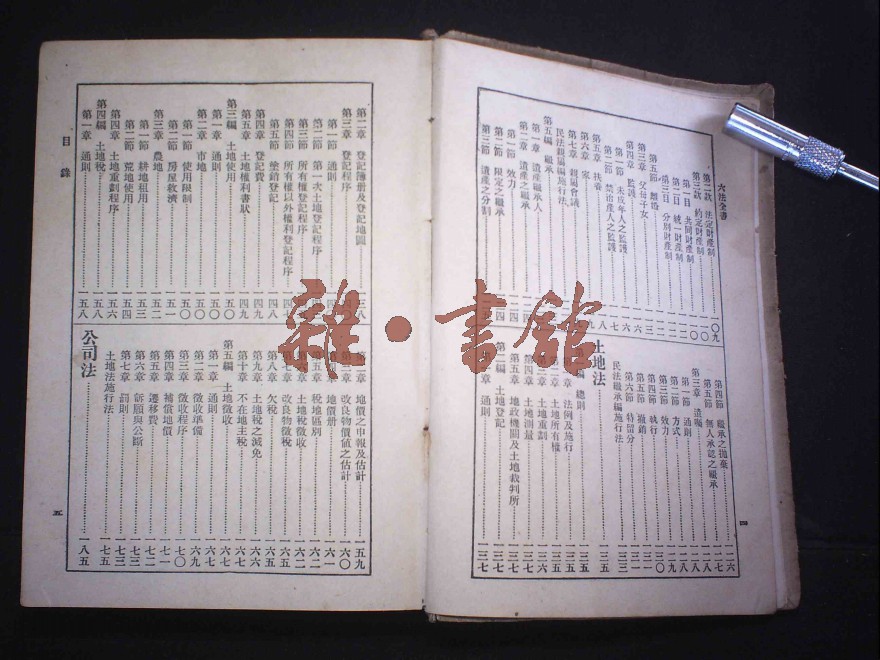 六法全書
第二款 法定財產制
第三款 約定財產制
第一目 共同財產制
第二目 統一財產制
第三目 分別財產制
第五節 離婚
第三章 父母子女
第四章 監護
第一節 未成年人之監護
第二節 禁治產人之監護
第五章 扶養
第六章 家
第七章 親屬會議
民法親屬編施行法
第五編 繼承
第一章 遺產繼承人
第二章 遺產之繼承
第一節 效力
第二節 限定之繼承
第三節 遺產之分割
第四節 繼承之拋棄 一二六
第五節 無人承認之繼承 一二七
第三章 遺囑 一二八
第一節 通則 一二八
第二節 方式 一二九
第三節 效力 一三〇
第四節 執行 一三一
第五節 撤銷
第六節 特留分 一三三
民法繼承編施行法 一三三
土地法 一三五
總則 一三五
法例及施行 一三五
土地所有權
土地重劃
第四章 土地測量
第五章 地政機關及土地裁判所 一三七
土地登記 一三七
第一章 通則 一三七
四
第二章 登記簿册及登記地圖 一三八
第三章 登記程序
第一節 通則
第二節 第一次土地登記程序
第三節 所有權登記程序
第四節 所有權以外權利登記程序
第五節 塗銷登記 一四八
第四章 登記費 一四九
第五章 土地權利書狀 一四九
第三編 土地使用 一五〇
第一章 通則 一五〇
第二章 市地 一五〇
第一節 使用限制 一五〇
第二節 房屋救濟 一五一
第三章 農地 一五二
第一節 耕地租用 一五三
第二節 荒地使用 一五四
第四章 土地重劃程序 一五六
第四編 土地稅 一五八
第一章 通則 一五八
目錄
第二章 地價之申報及估計 一五九
第三章 改良物價值之估計 一六〇
地價册 一六一
第五章 稅地區別 一六二
土地稅徵收 一六二
第七章 改良物徵稅 一六五
第八章 欠稅 一六五
第九章 土地稅之減免 一六六
第十章 不在地主稅 一六七
第五編 土地徵收 一六七
第一章 通則 一六七
第二章 徵收準備 一六九
第三章 徵收程序 一七〇
第四章 補償地價 一七一
第五章 遷移費 一七二
第六章 訴願與公斷 一七三
第七章 罰則 一七三
土地法施行法 一七五
公司法 一八五
五
雜·書館